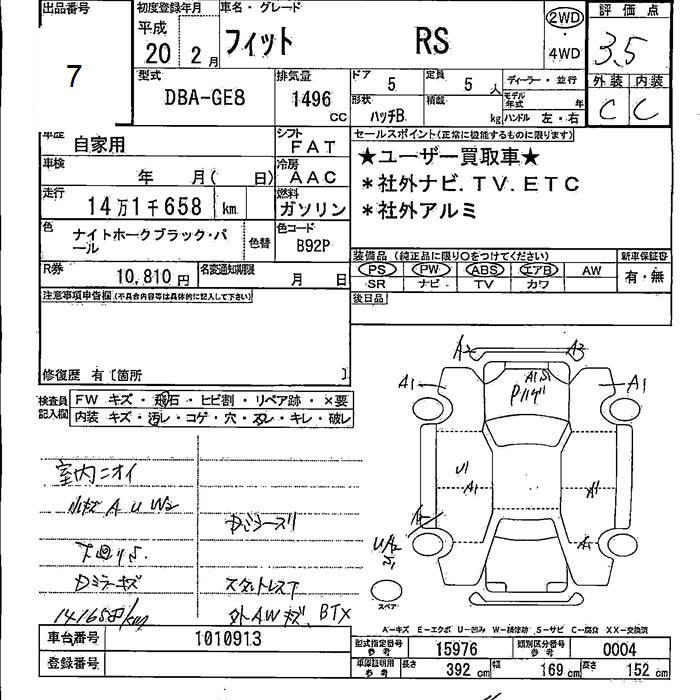 出品番号
7
初度登録年月
平成
20 2月
車名・グレード
フィット RS
2WD
・
4WD
評価点
3.5
外装 内装
C C
型式
DBA-GE8
排気量
1496
CC
ドア
5
定員
5 人
形状
ハッチB
積載
kg
ディーラー・並行
モデル年式 年
ハンドル 左・右
車歴
自家用
シフト
FAT
車検
年 月( 日)
冷房
AAC
走行
14万1千658 km
燃料
ガソリン
色
ナイトホークブラック・パール
色替
色コード
B92P
R券
10,810円
名変通知期限
月 日
セールスポイント(正常に機能するものに限ります)
★ユーザー買取車★
*社外ナビ.TV.ETC
*社外アルミ
装備品(純正品に限り○をつけてください)
PS PW ABS エアB AW
SR ナビ TV カワ
新車保証書
有・無
後日品
注意事項申告欄(不具合内容等は具体的に記入して下さい)
修復歴 有〔箇所 〕
検査員記入欄
FW キズ・飛石・ヒビ割・リペア跡・×要
内装 キズ・汚レ・コゲ・穴・スレ・キレ・破レ
室内ニオイ
小キズ A U W2
下回りS.
Dミラーキズ
141658km
スタットレスT
外AWキズ, BTX
A2 A2
A1 A1
A1
U1
A1 A1
スペア
A-キズ E-エクボ U-凹み W-補修跡 S-サビ C-腐食 XX-交換済
車台番号
1010913
登録番号
型式指定番号 参考
15976
類別区分番号 参考
0004
車庫証明用 参考
長さ 392 cm
幅 169 cm
高さ 152 cm